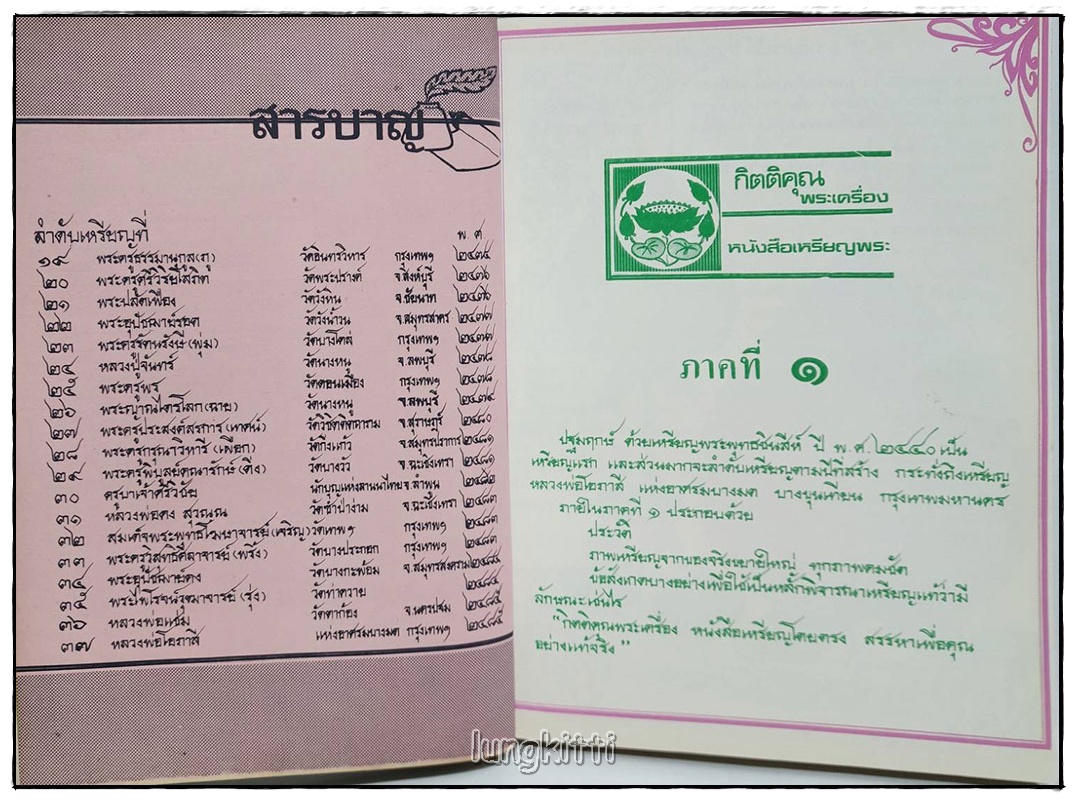 สารบาญ
ลำดับเหรียญที่ พ ศ
๑๙ พระครูธรรมานุกูล(ภู) วัดอินทรวิหาร กรุงเทพฯ ๒๔๓๕
๒๐ พระครูศรีวิริยโสภิต วัดพระปรางค์ จ.สิงห์บุรี ๒๔๗๖
๒๑ พระปลัดเฟื่อง วัดวังหิน จ.ชัยนาท ๒๔๗๖
๒๒ พระอุปัชฌาย์รอด วัดวังน้ำวน จ.สมุทรสาคร ๒๔๗๗
๒๓ พระครูรัตนรังษี(พุ่ม) วัดบางโคล่ กรุงเทพฯ ๒๔๗๗
๒๔ หลวงปู่จันทร์ วัดนางหนู จ.ลพบุรี ๒๔๗๘
๒๕ พระครูพรู วัดดอนเมือง กรุงเทพฯ ๒๔๗๘
๒๖ พระญาณไตรโลก(ฉาย) วัดนางหนู จ.ลพบุรี ๒๔๗๙
๒๗ พระครูประสงค์สรการ(เทศน์) จ.สุราษฎร์ ๒๔๘๐
๒๘ พระครูกรุณาวิหารี(เผือก) วัดกิ่งแก้ว จ.สมุทรปราการ ๒๔๘๑
๒๙ พระครูพิบูลย์คณารักษ์(ดิ่ง) วัดบางวัว จ.ฉะเชิงเทรา ๒๔๘๑
๓๐ ครูบาเจ้าศรีวิชัย นักบุญแห่งลานนาไทย จ.ลำพูน ๒๔๘๒
๓๑ หลวงพ่อดง สุวณฺณ วัดซำป่าง่าม จ.ฉะเชิงเทรา ๒๔๘๓
๓๒ สมเด็จพระพุทธโฆษาจารย์(เจริญ) วัดเทพฯ กรุงเทพฯ ๒๔๘๓
๓๓ พระครูวิสุทธิศีลาจารย์(พริ้ง) วัดบางปะกอก กรุงเทพฯ ๒๔๘๓
๓๔ พระอุปัชฌาย์คง วัดบางกะพ้อม จ.สมุทรสงคราม ๒๔๘๔
๓๕ พระไพโรจน์วุฒาจารย์(รุ่ง) วัดท่าควาย ๒๔๘๔
๓๖ หลวงพ่อแช่ม วัดตาก้อง จ.นครปฐม ๒๔๘๕
๓๗ หลวงพ่อโอภาสี แห่งอาศรมบางมด กรุงเทพฯ ๒๔๘๕
กิตติคุณ
พระเครื่อง
หนังสือเหรียญพระ
ภาคที่ ๑
ปฐมฤกษ์ ด้วยเหรียญพระพุทธชินสีห์ ปี พ.ศ. ๒๔๔๐ เป็น
เหรียญแรก และส่วนมากจะลำดับเหรียญตามปีที่สร้าง กระทั่งถึงเหรียญ
หลวงพ่อโอภาสี แห่งอาศรมบางมด บางขุนเทียน กรุงเทพมหานคร
ภายในภาคที่ ๑ ประกอบด้วย
ประวัติ
ภาพเหรียญจากของจริงขยายใหญ่ ทุกภาพคมชัด
ข้อสังเกตบางอย่างเพื่อใช้เป็นหลักพิจารณาเหรียญแท้ว่ามี
ลักษณะเช่นไร
"กิตติคุณพระเครื่อง หนังสือเหรียญโดยตรง สรรหาเพื่อคุณ
อย่างแท้จริง"
lungkitti